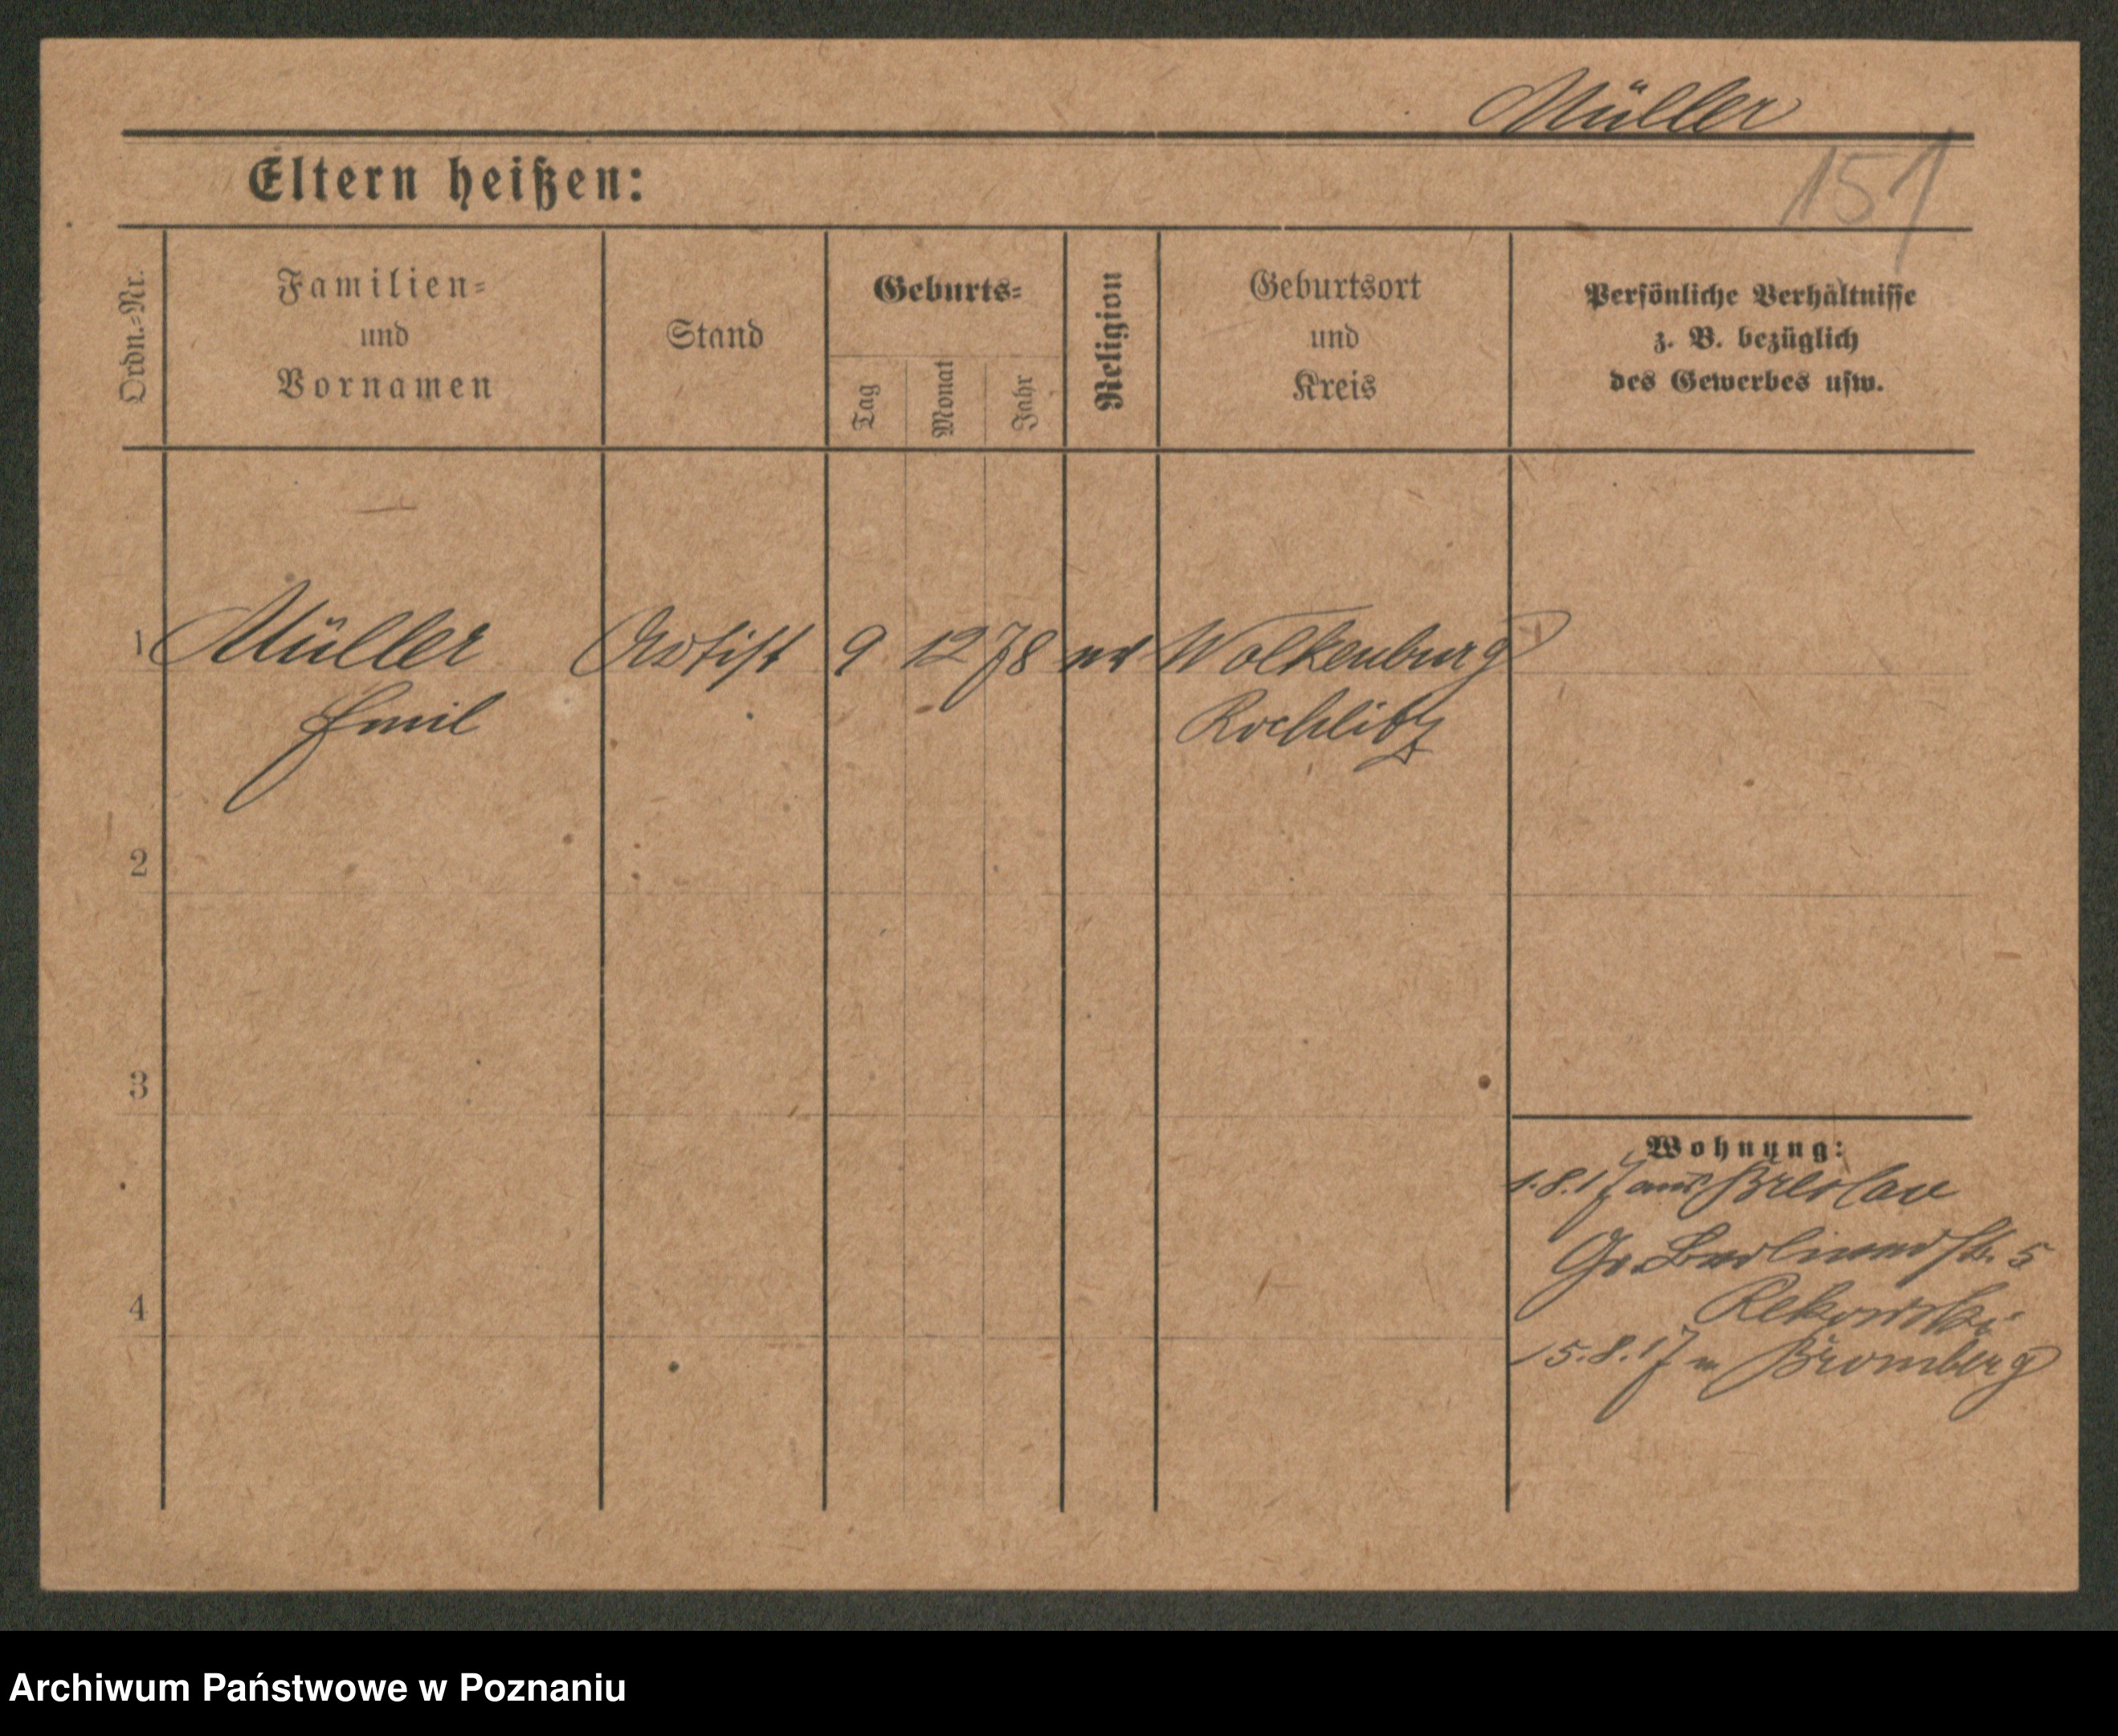 Müller
151
Eltern heißen:
Ordn.-Nr.
Familien-
und
Vornamen
Stand
Geburts-
Tag
Monat
Jahr
Religion
Geburtsort
und
Kreis
Persönliche Verhältnisse
z. B. bezüglich
des Gewerbes usw.
1 Müller Artist 9 12 78 ev Wolkenburg
Emil Rochlitz
2
3
Wohnung:
1.8.17 aus Breslau
Gr. Berlinerstr. 5
Rekowski
4
15.8.17 n Bromberg
Archiwum Państwowe w Poznaniu